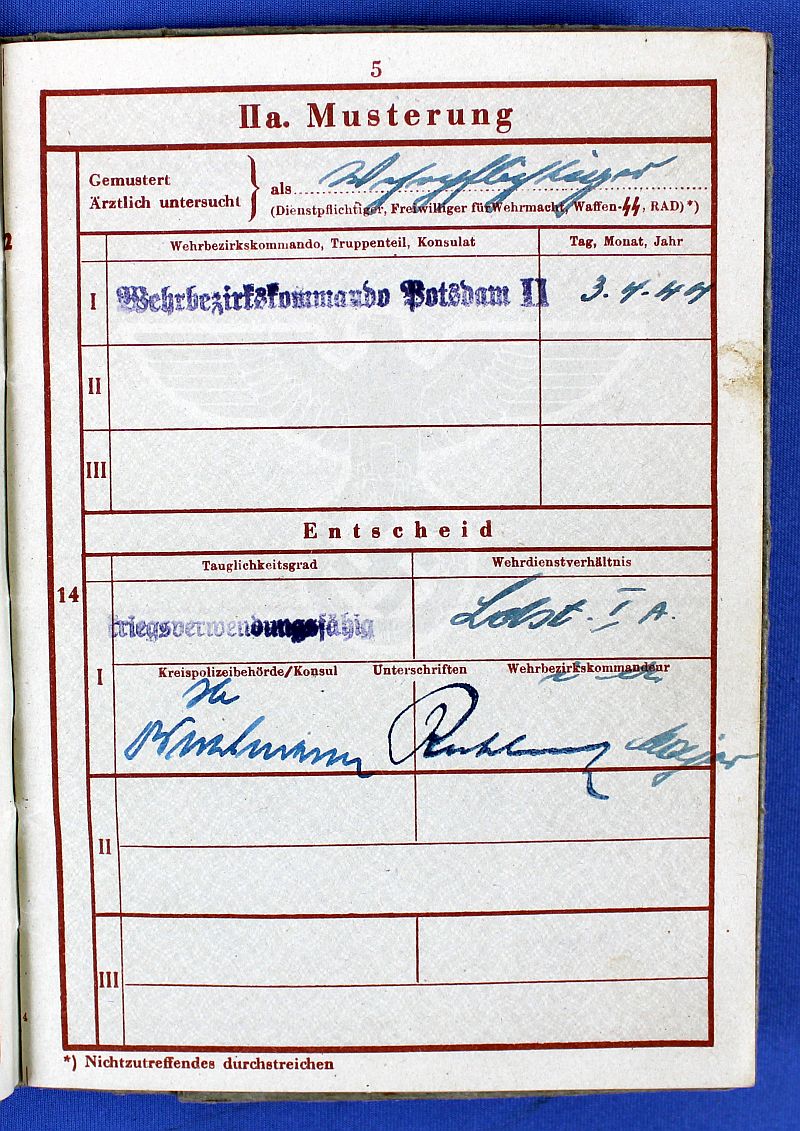 5
IIa. Musterung
Gemustert
Ärztlich untersucht
als Wehrpflichtiger
(Dienstpflichtiger, Freiwilliger für Wehrmacht, Waffen-SS, RAD)*)
Wehrbezirkskommando, Truppenteil, Konsulat
Tag, Monat, Jahr
2
I
Wehrbezirkskommando Potsdam II
3.4.44
II
III
Entscheid
Tauglichkeitsgrad
Wehrdienstverhältnis
14
kriegsverwendungsfähig
Ldst. I A.
I
Kreispolizeibehörde/Konsul
Unterschriften
Wehrbezirkskommandeur
Major
II
III
4
*) Nichtzutreffendes durchstreichen